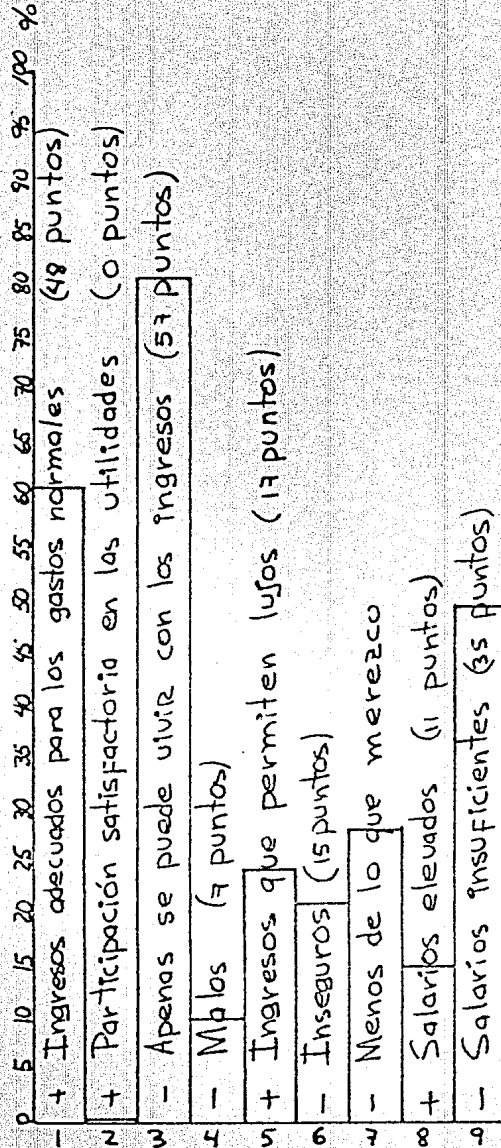 0 5 10 15 20 25 30 35 40 45 50 55 60 65 70 75 80 85 90 95 100 %
1 + Ingresos adecuados para los gastos normales (48 puntos)
2 + Participación satisfactoria en las utilidades (0 puntos)
3 - Apenas se puede vivir con los ingresos (57 puntos)
4 - Malos (7 puntos)
5 + Ingresos que permiten lujos (17 puntos)
6 - Inseguros (15 puntos)
7 - Menos de lo que merezco
8 + Salarios elevados (11 puntos)
9 - Salarios insuficientes (35 puntos)